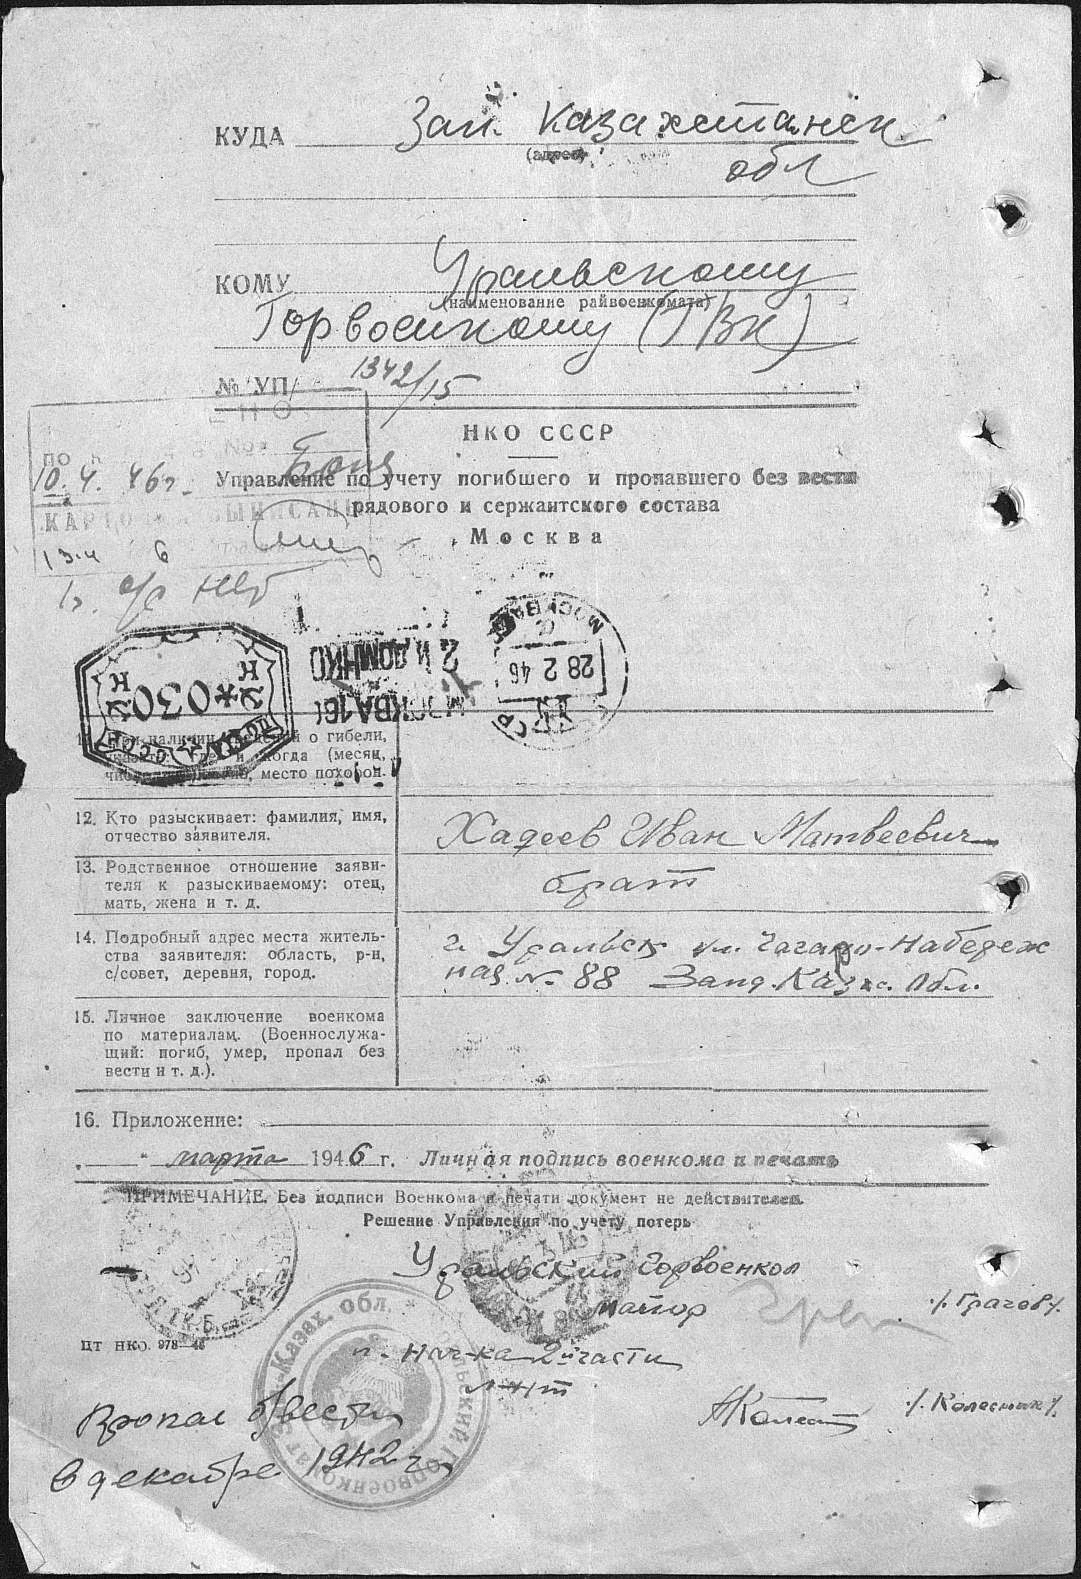 КУДА Зап. Казахстанск
(адрес)
обл
КОМУ Уральскому
(наименование райвоенкомата)
Горвоенкому (ГВК)
№ УП/ 1342/15
НКО СССР
Управление по учету погибшего и пропавшего без вести
рядового и сержантского состава
Москва
10.4. 46г.
КАРТОЧКА ВЫПИСАНА
13.4 6
МОСКВА
28 2 46
СССР
2 И ДОМ НКО
МОСКВА
К 030 К
СССР
о гибели,
когда (месяц,
место похорон.
12. Кто разыскивает: фамилия, имя,
отчество заявителя.
Хадеев Иван Матвеевич
13. Родственное отношение заяви-
теля к разыскиваемому: отец,
мать, жена и т. д.
брат
14. Подробный адрес места житель-
ства заявителя: область, р-н,
с/совет, деревня, город.
г. Уральск ул. Чагано-Набереж
ная № 88 Запд. Казхс. Обл.
15. Личное заключение военкома
по материалам. (Военнослужа-
щий: погиб, умер, пропал без
вести и т. д.).
16. Приложение:
" " марта 1946 г. Личная подпись военкома и печать
ПРИМЕЧАНИЕ. Без подписи Военкома и печати документ не действителен.
Решение Управления по учету потерь
Уральский Горвоенком
майор /. Грачов /.
ЦТ НКО. 978—46
п. Нач-ка 2й части
л-нт
/. Колесник /.
Пропал б/вести
в декабре 1942 г.